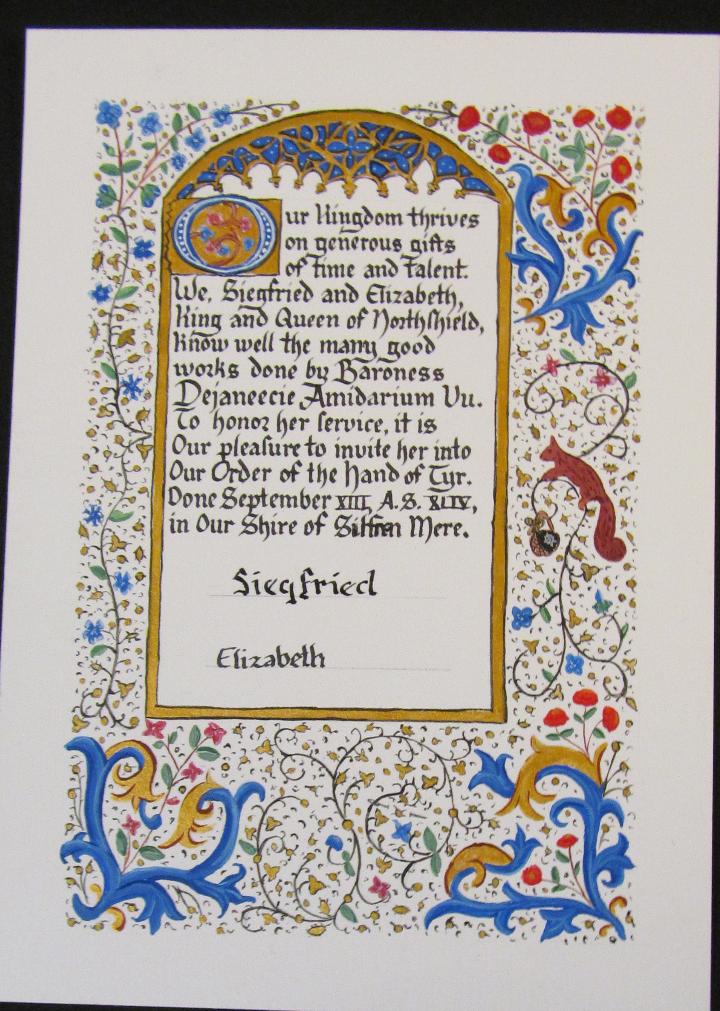 Our Kingdom thrives
on generous gifts
of time and talent.
We, Siegfried and Elizabeth,
King and Queen of Northshield,
know well the many good
works done by Baroness
Dejaneecie Amidarium Vu.
To honor her service, it is
Our pleasure to invite her into
Our Order of the Hand of Tyr.
Done September XIII, A.S. XLIV,
in Our Shire of Silfren Mere.
Siegfried
Elizabeth